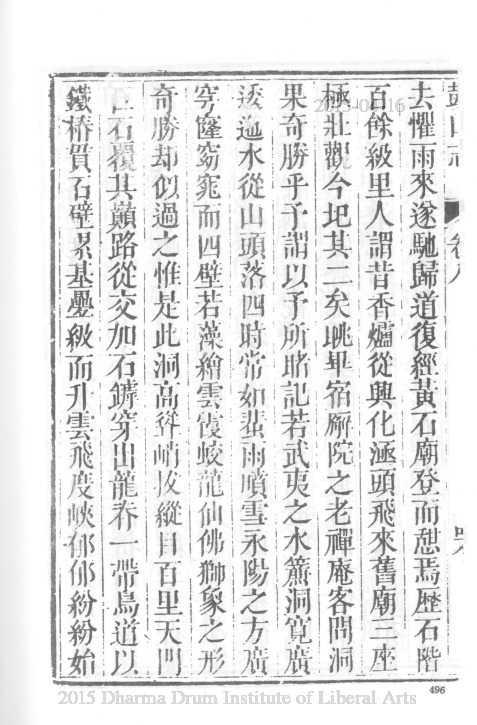 去懼雨來遂馳歸道復經黃石廟登而憇焉歷石階
百餘級里人謂昔香爐從興化涵頭飛來舊廟三座
極壯觀今圯其二矣眺畢宿廨院之老禪庵客問洞
果奇勝乎予謂以予所睹記若武夷之水簾洞寬廣
逶迤水從山頭落四時常如蜚雨噴雪永陽之方廣
穹窿窈窕而四壁若藻繪雲霞蛟龍仙佛獅象之形
奇勝却似過之惟是此洞高聳峭拔縱目百里天門
石覆其巔路從交加石罅穿出龍脊一帶鳥道以
鐵椿質石壁累基疊級而升雲飛度峽郁郁紛紛始
496
2015 Dharma Drum Institute of Liberal Arts